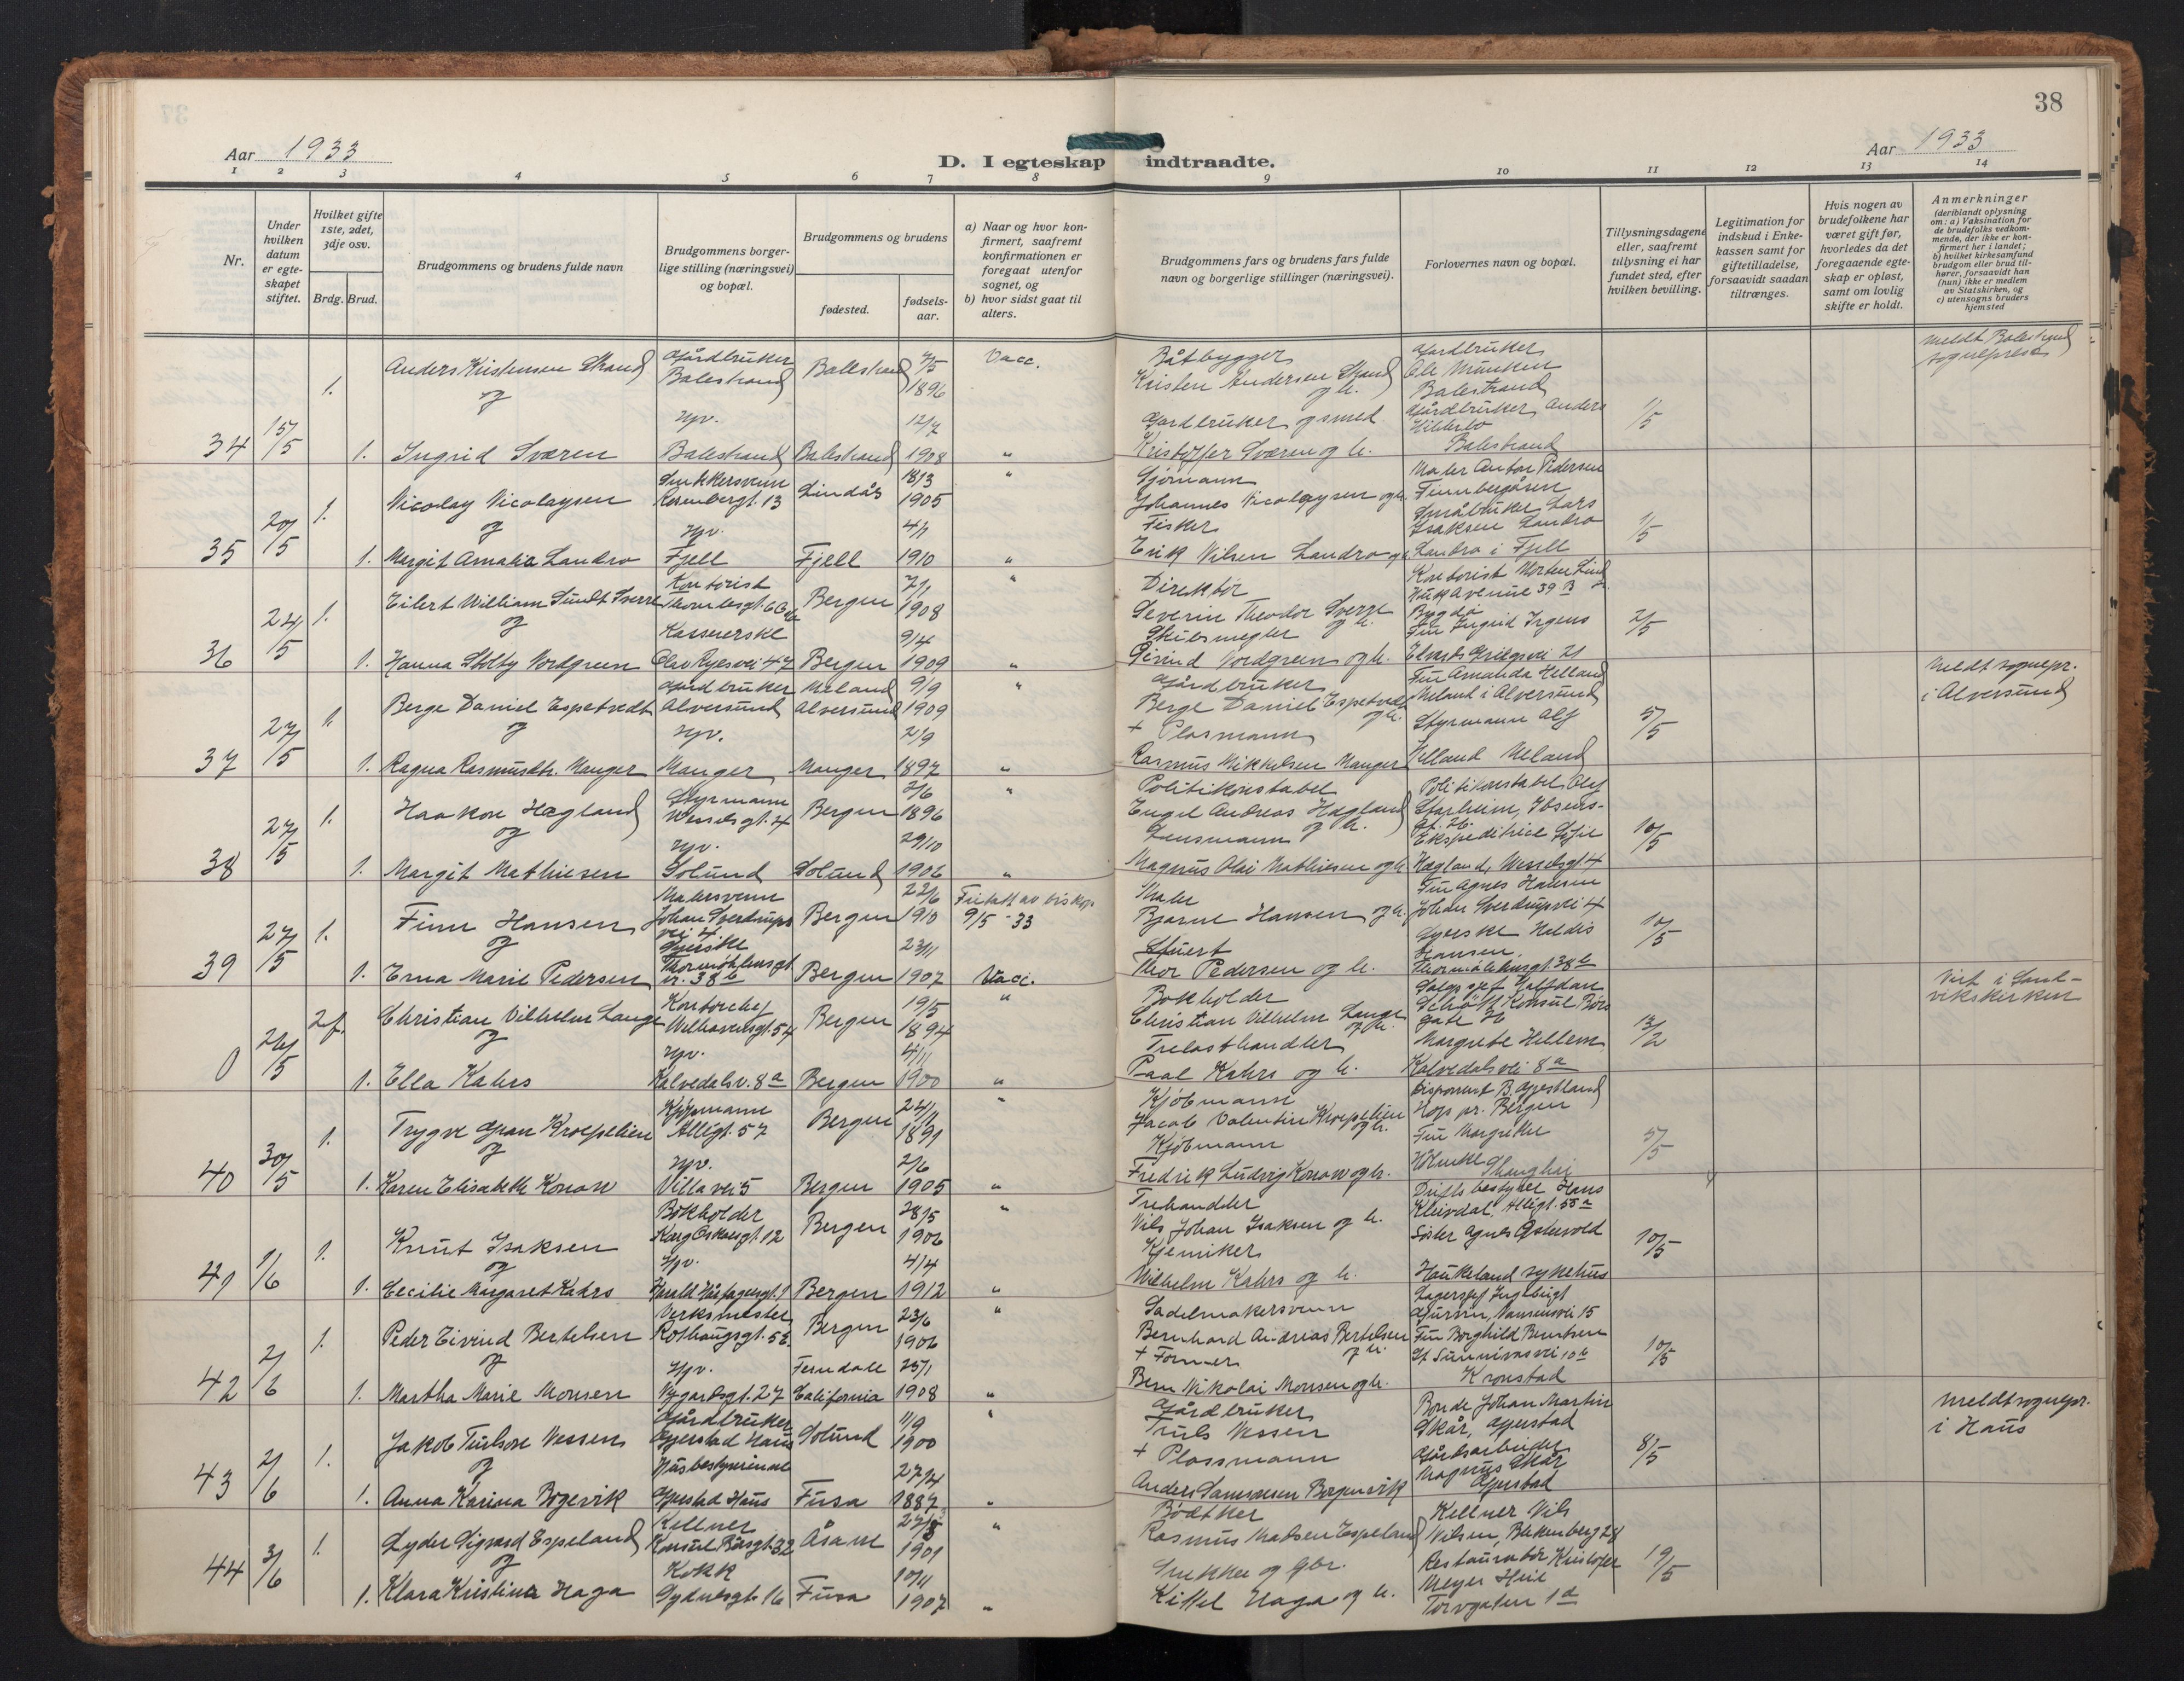 38
Aar 1933
D. I egteskap indtraadte.
Aar 1933
1 2 3 4 5 6 7 8 9 10 11 12 13 14
Nr.
Under hvilken datum er egteskapet stiftet.
Hvilket gifte 1ste, 2det, 3dje osv.
Brdg. Brud.
Brudgommens og brudens fulde navn
Brudgommens borgerlige stilling (næringsvei) og bopæl.
Brudgommens og brudens
fødested.
fødselsaar.
a) Naar og hvor konfirmert, saafremt konfirmationen er foregaat utenfor sognet, og
b) hvor sidst gaat til alters.
Brudgommens fars og brudens fars fulde navn og borgerlige stillinger (næringsvei).
Forlovernes navn og bopæl.
Tillysningsdagene eller, saafremt tillysning ei har fundet sted, efter hvilken bevilling.
Legitimation for indskud i Enkekassen samt for giftetilladelse, forsaavidt saadan tiltrænges.
Hvis nogen av brudefolkene har været gift før, hvorledes da det foregaaende egteskap er opløst, samt om lovlig skifte er holdt.
Anmerkninger
(deriblandt oplysning om: a) Vaksination for de brudefolks vedkommende, der ikke er konfirmert her i landet;
b) hvilket kirkesamfund brudgom eller brud tilhører, forsaavidt han (hun) ikke er medlem av Statskirken, og
c) utensogns bruders hjemsted
1. Anders Kristensen Strand Gårdbruker Balestrand Balestrand 7/5 1896 Vacc. Båtbygger Kristen Andersen Strand og h. Gårdbruker Ole Munken Balestrand meldt Balestrand sogneprest
og
34 15/5 1. Ingrid Sværen Hv. Balestrand Balestrand 12/7 1908 " Gardbruker og smed Kristoffer Sværen og h. Gårdbruker Anders Balestrand 1/5
1. Nicolay Nicolaysen Snekkersvenn Rosenbergt. 13 Lindås 18/3 1905 " Sjømann Johannes Nicolaysen og h. Maler Anton Pedersen
og
35 20/5 1. Margit Amalia Landro Hv. Fjell Fjell 4/1 1910 " Fisker Erik Nilsen Landro og h. Småbruker Lars Isaksen Landro Landro i Fjell 1/5
1. Eilert William Sundt Sverre Kontorist Bergen 7/1 1908 " Direktør Severin Theodor Sverre og h. Kontorist Morten Lind Huk Avenue 39 B Bygdø
og
36 24/5 1. Hanna Stoltz Nordgreen Kassererske Olav Ryesvei 47 Bergen 9/4 1909 " Skibsmegler Eivind Nordgreen og h. Frk Ingrid Irgens 21 2/5
1. Berge Daniel Espetvedt Gårdbruker Alversund Meland Alversund 9/9 1909 " Gårdbruker Berge Daniel Espetvedt og h. Meland i Alversund Meldt sognepr. i Alversund
og
37 27/5 1. Ragna Rasmusdtr. Manger Hv. Manger Manger 2/9 1897 " + Plasmann Rasmus Mikkelsen Manger Styrmann Alf Helland Meland 5/5
1. Haakon Hægland Styrmann Wesselsgt. 4 Bergen 2/6 1896 " Politikonstabel Engel Andreas Hægland og h. Politikonstabel Olaf Starheim, Ibsensgt. 26.
og
38 27/5 1. Margit Mathiesen Hv. Solund Solund 29/10 1906 " Lensmann Magnus Olai Mathiesen og h. Ekspeditrice Sofie Hægland, Wesselsgt 4 10/5
1. Finn Hansen Malersvenn Johan Sverdrups vei 4 Bergen 22/6 1910 Fritatt av biskop 9/5 - 33 Maler Bjarne Hansen og h. Frk Agnes Hansen Johan Sverdrupsvei 4
og
39 27/5 1. Erna Marie Pedersen Syerske Thormøhlensgt nr. 38 b Bergen 23/11 1907 Vacc. Stuert Thor Pedersen og h. Syerske Haldis Hansen, Thormøhlensgt. 38 b 10/5
2 f. Christian Vilhelm Lange Kontorchef Welhavensgt. 54 Bergen 19/5 1894 " Bokholder Christian Vilhelm Lange og h. Salgssjef Halfdan Konsul Børs gate Viet i Sandvikskirken
og
0 26/5 1. Ella Kahrs Hv. Kalvedalsv. 8 a Bergen 4/11 1900 " Trelasthandler Paal Kahrs og h. Margrete Hellem Kalvedalsvei 8 a 13/2
1. Trygve Gran Kroepelien Kjøpmann Alligt. 57 Bergen 24/11 1891 " Kjøbmann Jacob Valentin Kroepelien og h. Disponent B. Gjestland Hop pr. Bergen
og
40 30/5 1. Karen Elisabeth Konow Hv. Villavei 5 Bergen 2/6 1905 " Kjøbmann Fredrik Ludvig Konow og h. Fru Margrethe Shanghai 5/5
1. Knut Isaksen Bokholder Kong Oskarsgt. 12 Bergen 28/5 1906 " Trehandler Nils Johan Isaksen og h. Driftsbestyrer Hans Kleivdal, Alligt. 55 a
og
41 1/6 1. Cecilie Margaret Kahrs Hv. Harald Hårfagersgt. 1 Bergen 4/4 1912 " Kjemiker Wilhelm Kahrs og h. Søster Agnes Østervold Haukeland sykehus 10/5
1. Peder Eivind Bertelsen Verksmester Rothaugsgt. 5 Bergen 23/6 1906 " Sadelmakersvenn Bernhard Andreas Bertelsen og h. Lagersjef Ingebrigt Nansensvei 15
og
42 2/6 1. Martha Marie Monsen Hv. Nygardsgt. 27 Ferndale California 25/1 1908 " + Former Bern Nikolai Monsen og h. Frk Borghild Berntsen St. Sunnivasvei 10 b Kronstad 10/5
1. Jakob Trulsen Vessen Gårdbruker Gjerstad Haus Solund 11/9 1900 " Gårdbruker Truls Vessen Bonde Johan Martin Skår, Gjerstad meldt sognepr. i Haus
og
43 2/6 1. Anna Karina Bogevik Husbestyrerinne Gjerstad Haus Fusa 27/4 1887 " + Plassmann Gårdsarbeider Magnus Skår Gjerstad 8/5
1. Lyder Sigvard Espeland Kellner Konsul Børsgt. 32 Åsane 1901 " Bødtker Rasmus Madsen Espeland Kellner Nils Nilsen, Blekenberg 28
og
44 3/6 1. Klara Kristina Haga Kokk Sydnesgt. 16 Fusa 10/11 1907 " Snekker og gbr. Kittel Haga og h. Restauratør Kristofer Meyer Torvgaten 1 d 19/5